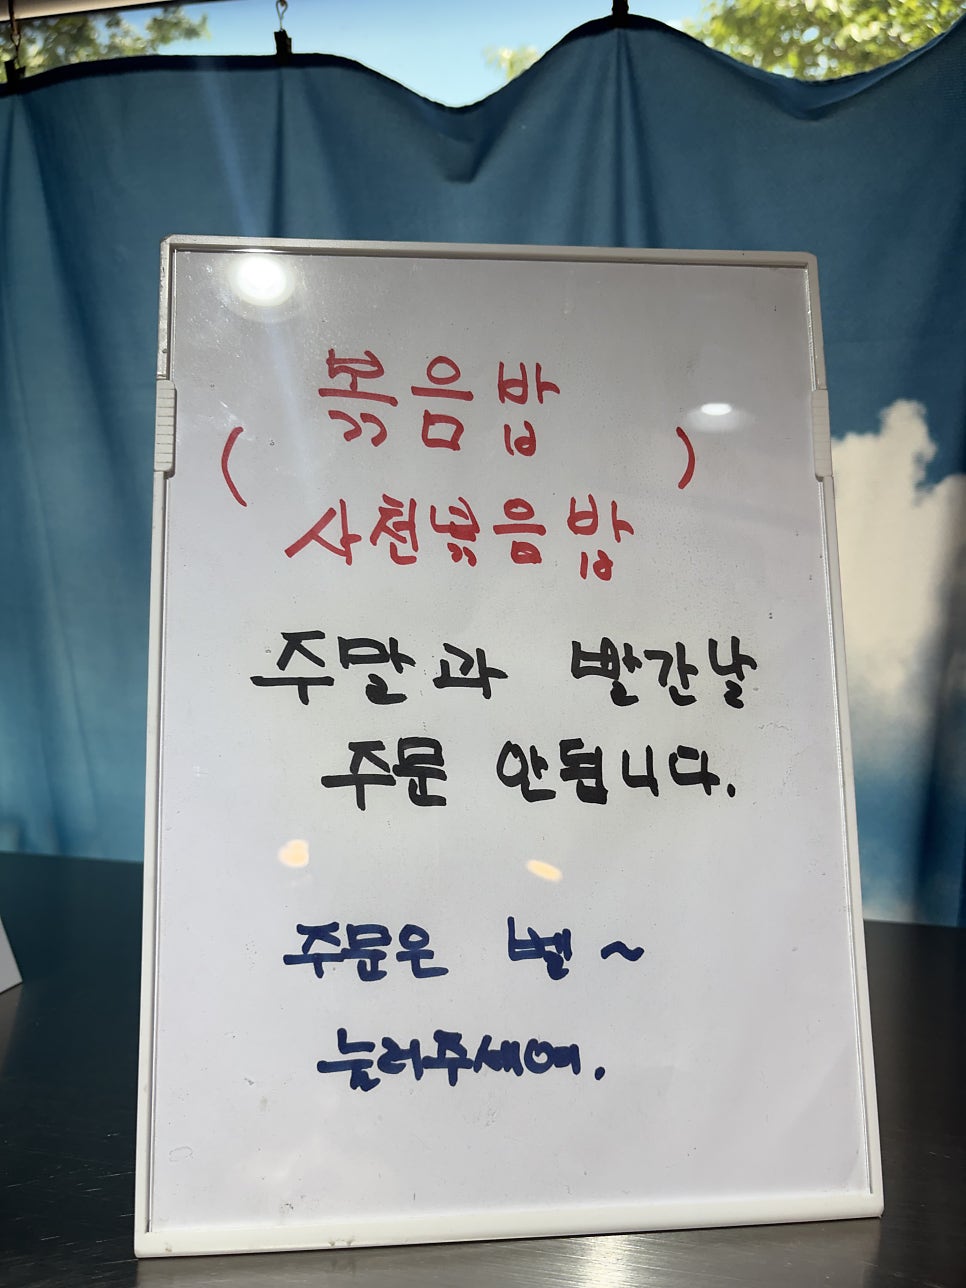 볶음밥
( )
사천볶음밥
주말과 빨간날
주문 안됩니다.
주문은 벨~
눌러주세여.